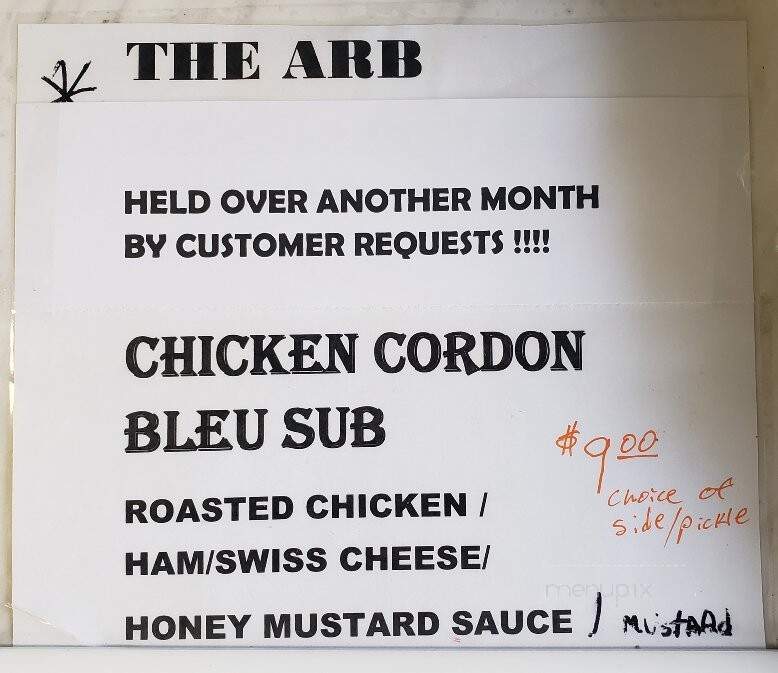 THE ARB
HELD OVER ANOTHER MONTH
BY CUSTOMER REQUESTS !!!!
CHICKEN CORDON
BLEU SUB
$9.00
choice of
side/pickle
ROASTED CHICKEN /
HAM/SWISS CHEESE/
menupix
HONEY MUSTARD SAUCE / MUstARd